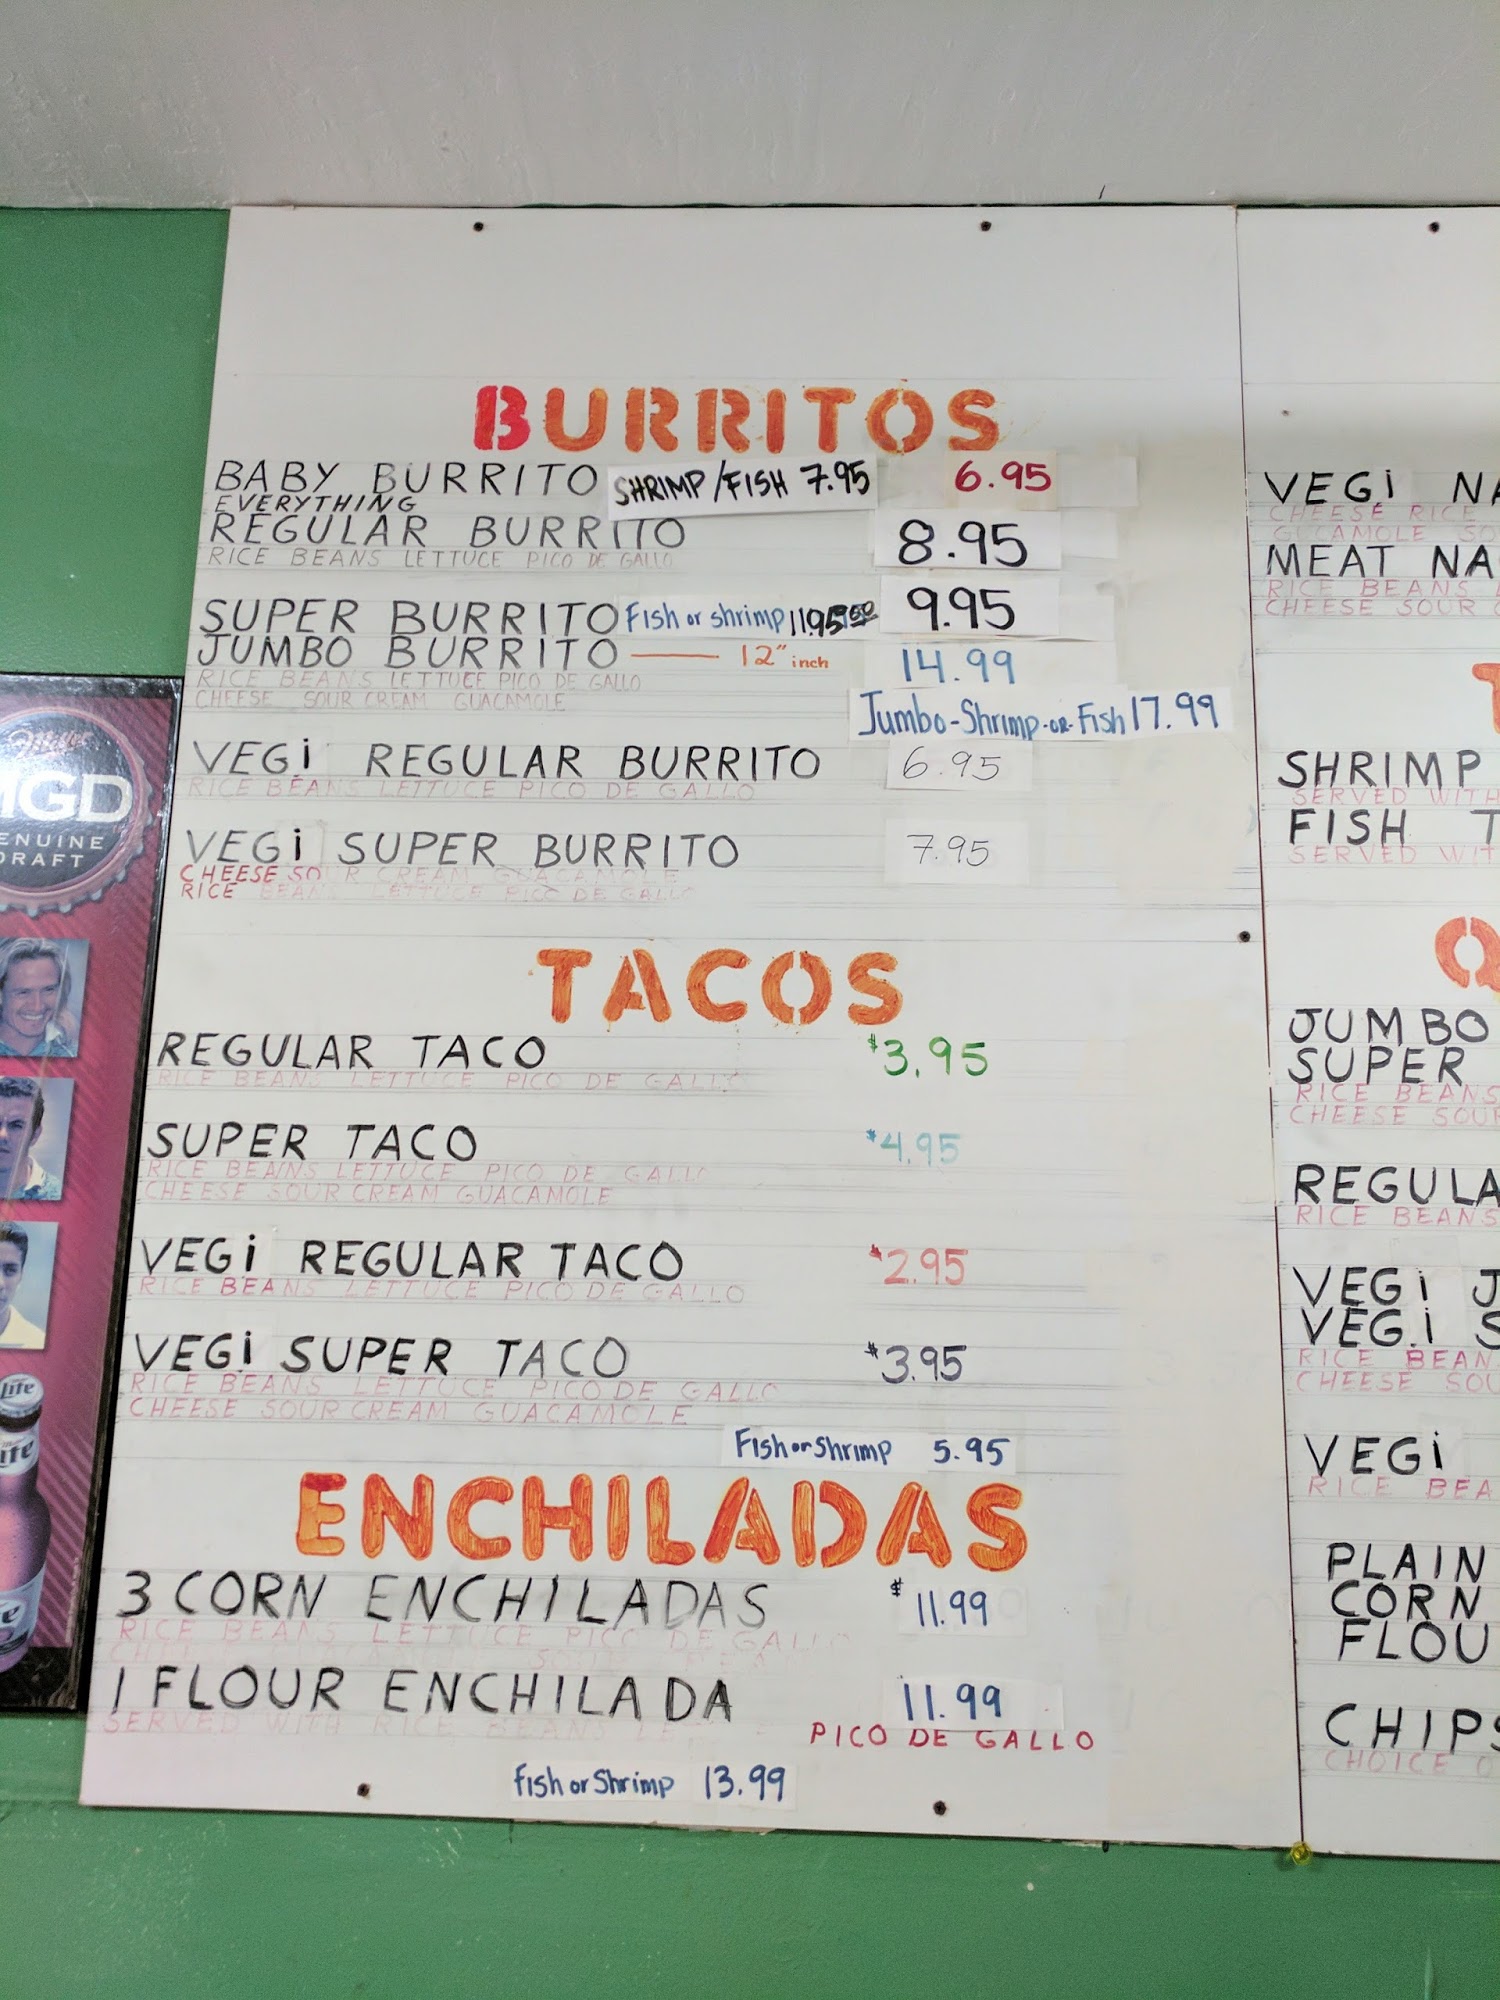 BURRITOS
BABY BURRITO SHRIMP/FISH 7.95 6.95
EVERYTHING
REGULAR BURRITO 8.95
RICE BEANS LETTUCE PICO DE GALLO
SUPER BURRITO Fish or shrimp 11.95 9.95
JUMBO BURRITO 12" inch 14.99
RICE BEANS LETTUCE PICO DE GALLO
CHEESE SOUR CREAM GUACAMOLE
Jumbo-Shrimp-or-Fish 17.99
VEGi REGULAR BURRITO 6.95
RICE BEANS LETTUCE PICO DE GALLO
VEGi SUPER BURRITO 7.95
CHEESE SOUR CREAM GUACAMOLE
RICE BEANS LETTUCE PICO DE GALLO
TACOS
REGULAR TACO $3.95
RICE BEANS LETTUCE PICO DE GALLO
SUPER TACO $4.95
RICE BEANS LETTUCE PICO DE GALLO
CHEESE SOUR CREAM GUACAMOLE
VEGi REGULAR TACO $2.95
RICE BEANS LETTUCE PICO DE GALLO
VEGi SUPER TACO $3.95
RICE BEANS LETTUCE PICO DE GALLO
CHEESE SOUR CREAM GUACAMOLE
Fish or Shrimp 5.95
ENCHILADAS
3 CORN ENCHILADAS $11.99
RICE BEANS LETTUCE PICO DE GALLO
1 FLOUR ENCHILADA 11.99
SERVED WITH RICE BEANS
PICO DE GALLO
Fish or Shrimp 13.99
VEGi
CHEESE RICE
MEAT
RICE BEANS
CHEESE SOUR
SHRIMP
SERVED WITH
FISH
SERVED WIT
Q
JUMBO
SUPER
RICE BEANS
CHEESE SOUR
REGULA
RICE BEANS
VEGi J
VEGi S
RICE BEAN
CHEESE SOU
VEGi
RICE BEA
PLAIN
CORN
FLOU
CHIPS
CHOICE O
Miller
MGD
GENUINE
DRAFT
Lite